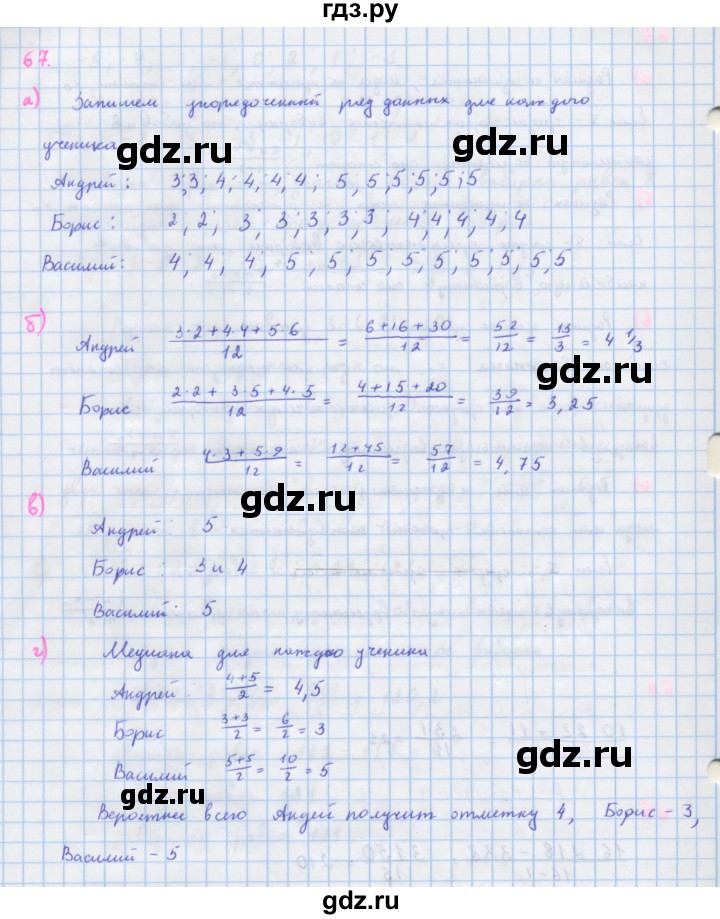 гдз.ру
67.
а) Запишем упорядоченный ряд данных для каждого
ученика
gdz.ru gdz.ru
Андрей: 3; 3; 4; 4; 4; 4; 5, 5; 5; 5; 5; 5
Борис: 2, 2; 3; 3; 3; 3; 3; 4; 4; 4; 4; 4
Василий: 4; 4, 4; 5; 5; 5; 5; 5; 5; 5; 5; 5
gdz.ru
б) Андрей (3·2+4·4+5·6)/12 = (6+16+30)/12 = 52/12 = 13/3 = 4 1/3
gdz.ru
Борис (2·2+3·5+4·5)/12 = (4+15+20)/12 = 39/12 = 3,25
Василий (4·3+5·9)/12 = (12+45)/12 = 57/12 = 4,75
gdz.ru
в)
Андрей: 5
gdz.ru
Борис: 3 и 4
Василий: 5
г) Медиана для каждого ученика
Андрей: (4+5)/2 = 4,5
gdz.ru
Борис (3+3)/2 = 6/2 = 3
gdz.ru
Василий (5+5)/2 = 10/2 = 5
gdz.ru
Вероятнее всего Андей получит отметку 4, Борис - 3,
Василий - 5
gdz.ru
gdz.ru